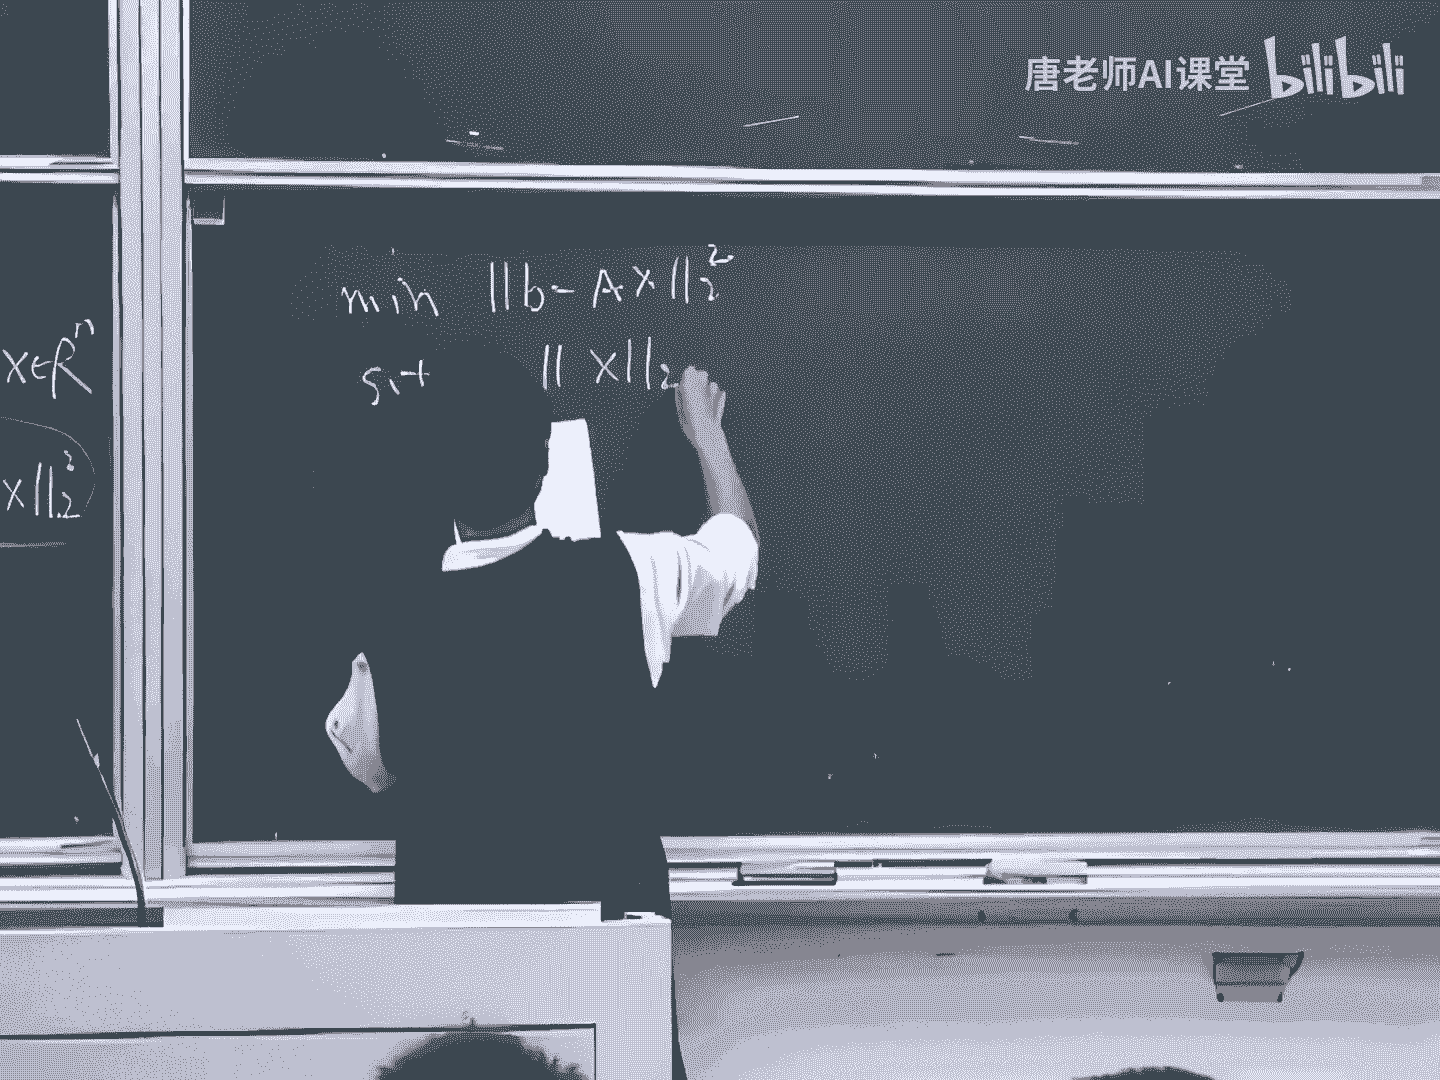 唐老师AI课堂 bilibili
x∈Rⁿ
x||₂²
min ||b-Ax||₂²
s.t ||x||₂